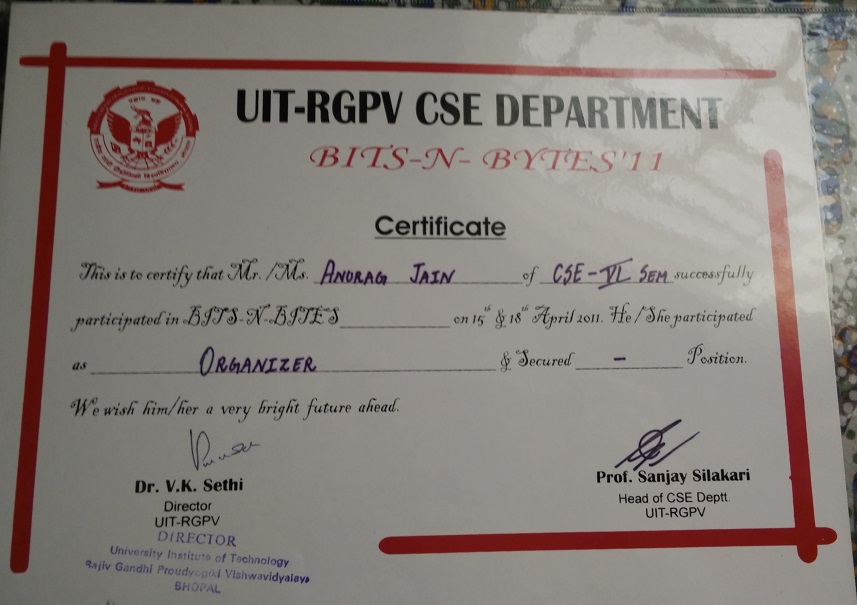 UIT-RGPV CSE DEPARTMENT
BITS-N- BYTES'11
Certificate
This is to certify that Mr. /Ms. ANURAG JAIN of CSE-VI SEM successfully
participated in BITS-N-BITES on 15th & 18th April 2011. He/She participated
as ORGANIZER & Secured - Position.
We wish him/her a very bright future ahead.
Dr. V.K. Sethi
Director
UIT-RGPV
DIRECTOR
University Institute of Technology
Rajiv Gandhi Proudyogiki Vishwavidyalaya
BHOPAL
Prof. Sanjay Silakari
Head of CSE Deptt.
UIT-RGPV